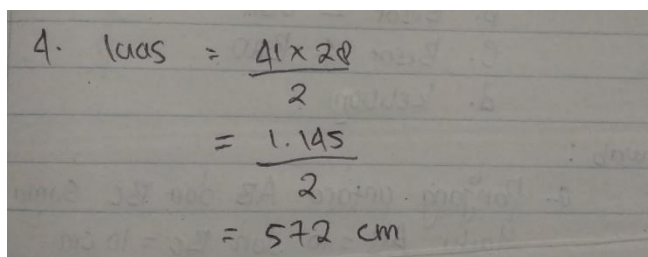 4. luas = 41 x 28
2
= 1.145
2
= 572 cm